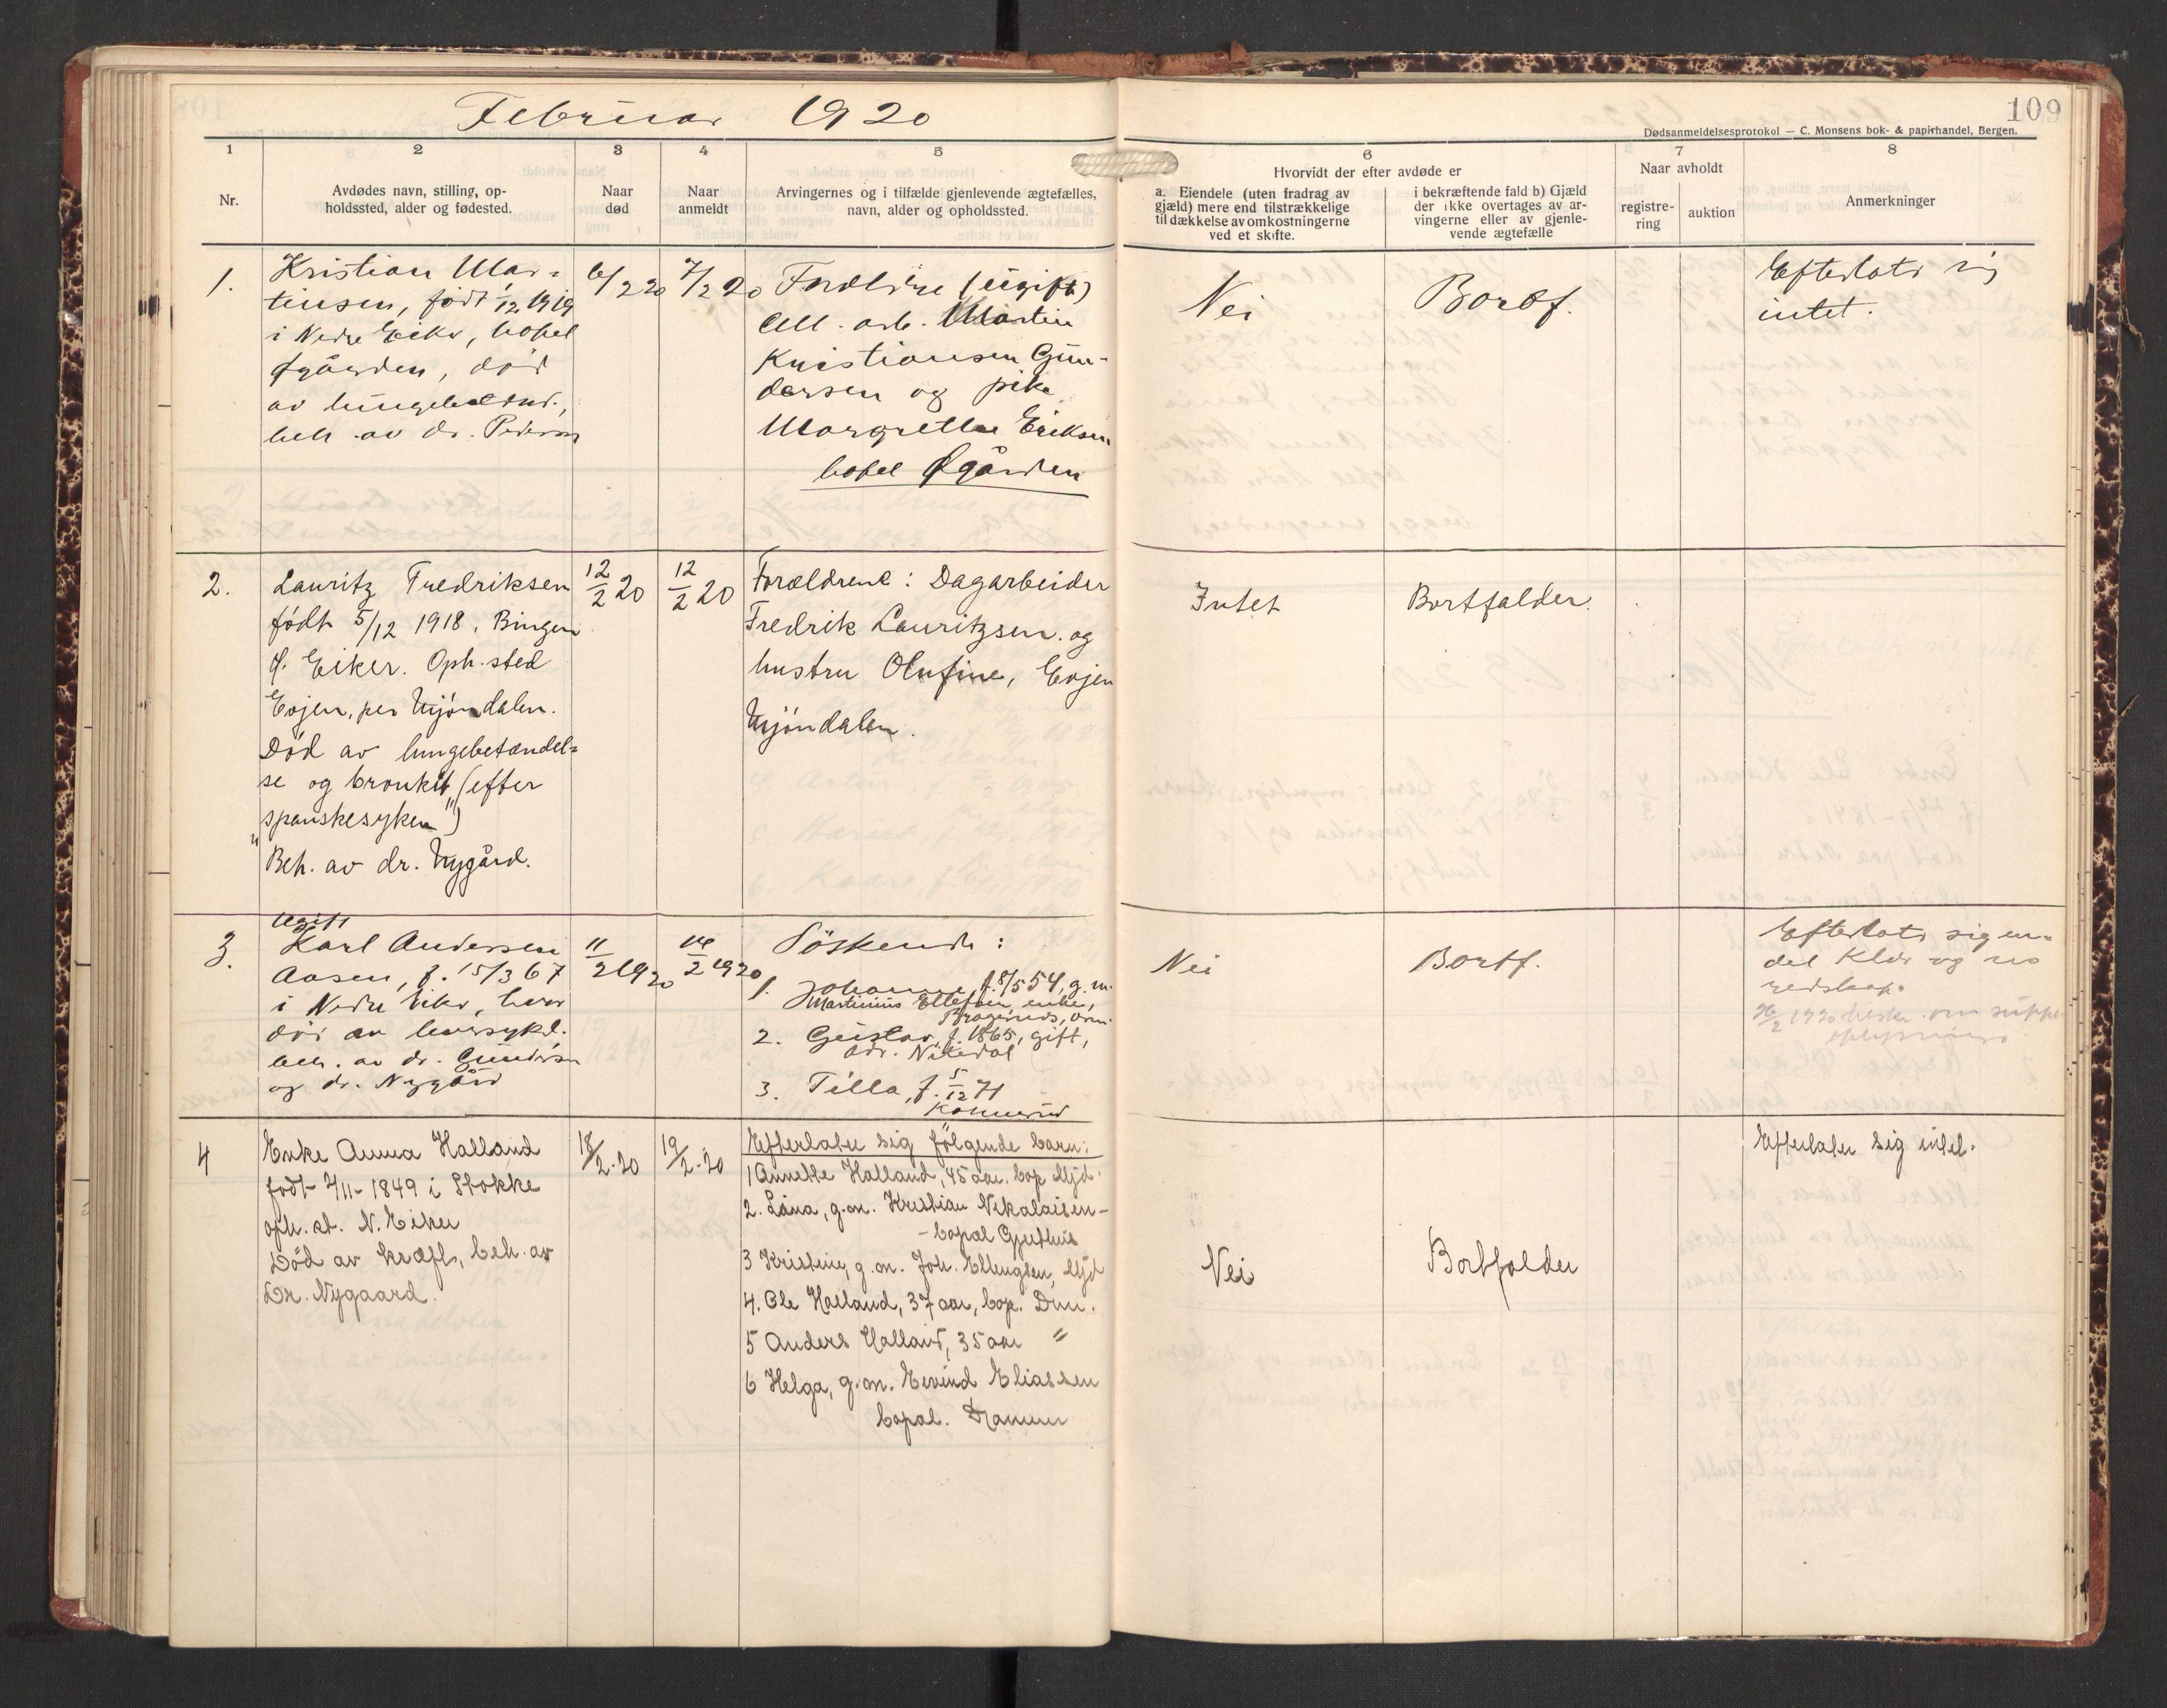 Februar 1920
109
Dødsanmeldelsesprotokol — C. Monsens bok- & papirhandel, Bergen.
1
2
3
4
5
6
7
8
Nr.
Avdødes navn, stilling, op-
holdssted, alder og fødested.
Naar
død
Naar
anmeldt
Arvingernes og i tilfælde gjenlevende ægtefælles,
navn, alder og opholdssted.
Hvorvidt der efter avdøde er
a. Eiendele (uten fradrag av
gjæld) mere end tilstrækkelige
til dækkelse av omkostningerne
ved et skifte.
i bekræftende fald b) Gjæld
der ikke overtages av ar-
vingerne eller av gjenle-
vende ægtefælle
Naar avholdt
registre-
ring
auktion
Anmerkninger
1.
Kristian Mar-
tinsen, født 1/12 1919
i Nedre Eiker, bopel
Øgården, død
av lungebetænd.,
beh. av dr. Pedersen
6/2 20
7/2 20
Forældre (ugift)
All. arb. Martin
Kristiansen Gun-
dersen og pike
Margrethe Eriksen
bopel Øgården
Nei
Bortf.
Efterlate sig
intet.
2.
Lauritz Fredriksen
født 5/12 1918, Bingen
Ø. Eiker. Oph. sted
Evjen, per Mjöndalen.
Död av lungebetændel=
se og bronkit (efter
"spanskesyken")
Beh. av dr. Nygård.
12/2 20
12/2 20
Forældrene: Dagarbeider
Fredrik Lauritzsen og
hustru Olufine, Evjen
Mjöndalen.
Intet
Bortfalder.
3.
Ugift
Karl Andersen
Aasen, f. 15/3 67
i Nedre Eiker, hvor
død av leversykd.
beh. av dr. Gundersen
og dr. Nygård
11/2 1920
14/2 1920
Söskende:
1. Johanne, f. 8/5 54, g. m.
Martinius Ellefsen, enke,
Bragernes, Drm.
2. Gustav, f. 1865, gift,
adr. Nitedal
3. Tilla, f. 5/12 71
Konnerud
Nei
Bortf.
Efterlate sig en-
del klær og
redskap.
1920 om supp.
oplysninger
4
Enke Anna Halland
født 4/11-1849 i Stokke
oph. st. N. Eiker
Död av kræft, beh. av
Dr. Nygaard.
18/2-20
19/2-20
Efterlater sig følgende barn:
1 Annette Halland, 45 aar. bop Mjd.
2. Lina, g.m. Kristian Nikolaisen -
- bopæl Gjethus
3 Kristine, g.m. Joh. Ellingsen, Mjd
4. Ole Halland, 37 aar, bop. Drm.
5 Anders Halland, 35 aar "
6 Helga, g.m. Eivind Eliassen
bopæl. Drammen
Nei
Bortfalder
Efterlater sig intet.